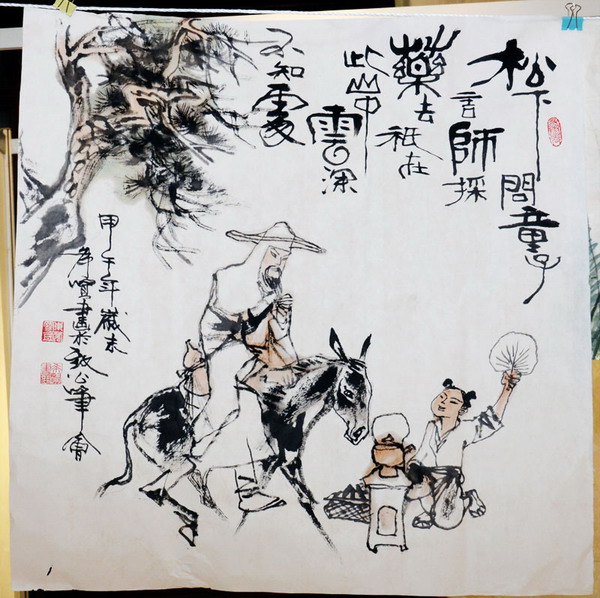 松下問童子
言師採
藥去祗在
此山中雲深
不知處
甲午年歲末
畫於公筆會